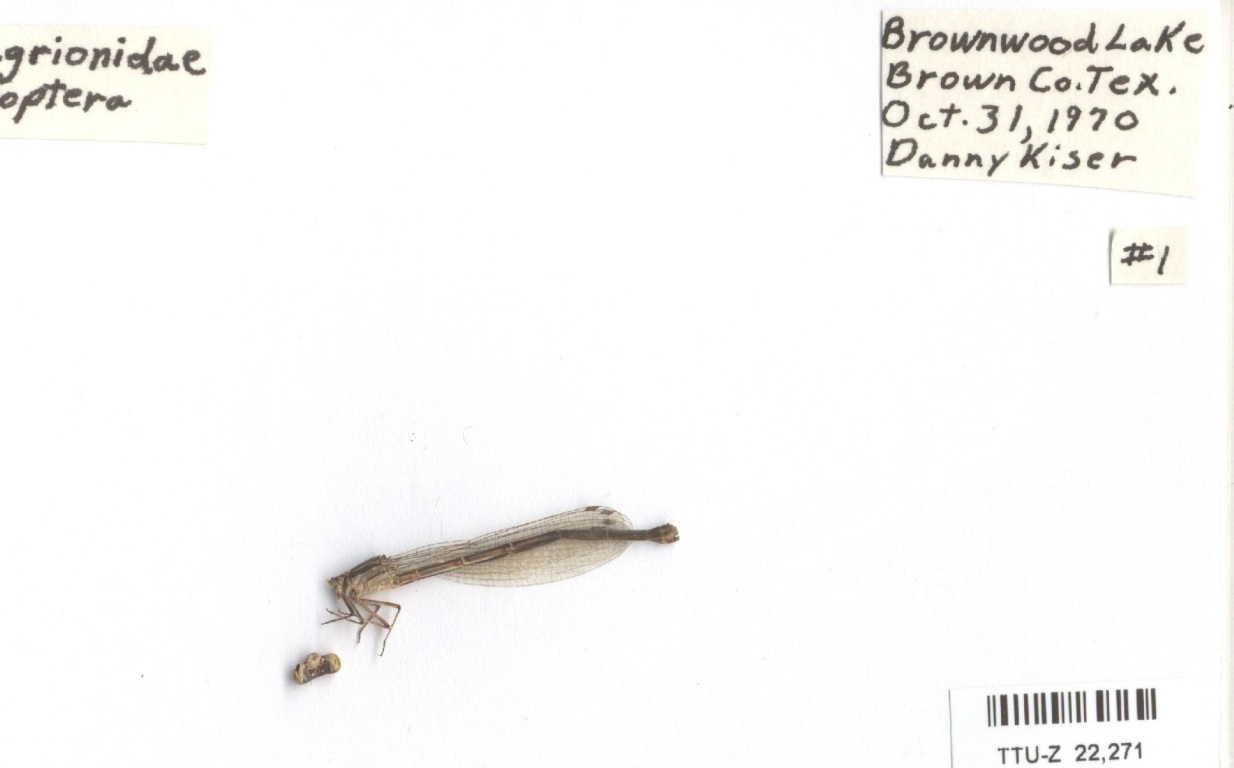 grionidae
optera
Brownwood Lake
Brown Co. Tex.
Oct. 31, 1970
Danny Kiser
#1
TTU-Z 22,271